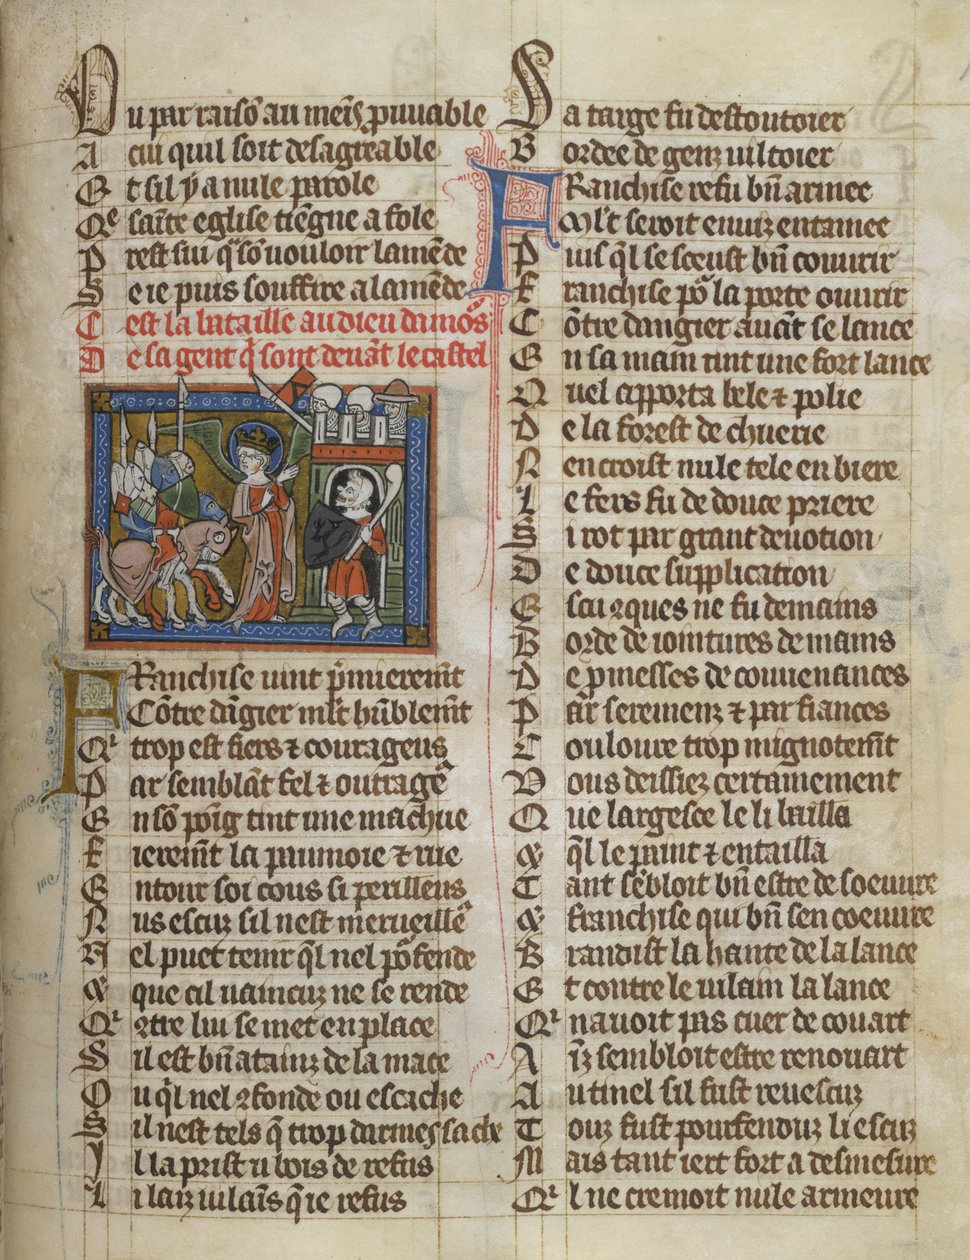 Ou par raisō au meīs ꝓuuable
A cui quil soit desagreable
E t sil y a nule parole
Qe saīte eglise tiēgne a fole
P rest sui qͣ sō uouloir lamēde
S e ie puis souffire a lamēde
C est la bataille au dieu damōs
D e sa gent q̄ sont deuāt le castel
FRanchise uint pͥmieremt̄
Cōtre dāgier ml̅t hūblemt̄
Qͥ trop est fiers ⁊ courageus
P ar semblāt fel ⁊ outragē
E n sō poīg tint une machue
F ieremt̄ la paumoie ⁊ rue
E ntour soi cous si perilleus
N us escuz sil nest merueillē
N el puet tenir ql̄ nel pōfende
⁊ que cil uaincuz ne se rende
Qͥ ꝯtre lui se met en place
S il est bn̄ atainz de la mace
O u ql̄ nel ꝯfonde ou escache
S il nest tels q̄ trop darmes sache
I l la prist u bois de refus
L i laiz uilaīs q̄ ie refus
Sa targe fu destoutoier
B ordee de genz uiltoier
FRanchise refu bn̄ armee
Ml̅t seroit enuiz entamee
P uis ql̄ se sceust bn̄ couurir
F ranchise pō la porte ouurir
C ōtre dangier auāt se lance
E n sa main tint une fort lance
Q uel apporta bele ⁊ polie
D e la forest de chuerie
N en croist nule tele en biere
L e fers fu de douce priere
S i rot par grant deuotion
D e douce supplication
E scu ꝯques ne fu demains
B orde de iointures de mains
D e ꝓmesses de couenances
P ar seremenz ⁊ par fiances
C ouloure trop mignotemt̄
V ous deissiez certainement
Q ue largesce le li bailla
⁊ ql̄ le paint ⁊ entailla
T ant sēbloit bn̄ estre de soeuure
⁊ franchise qui bn̄ sen coeuure
B randist la hante de la lance
E t contre le uilain la lance
Qͥ nauoit pas cuer de couart
A īz sembloit estre renouart
A u tinel sil fust reuescuz
T ouz fust pourfenduz li escuz
M ais tant iert fort a desmesure
Qͥl ne cremoit nule armeure